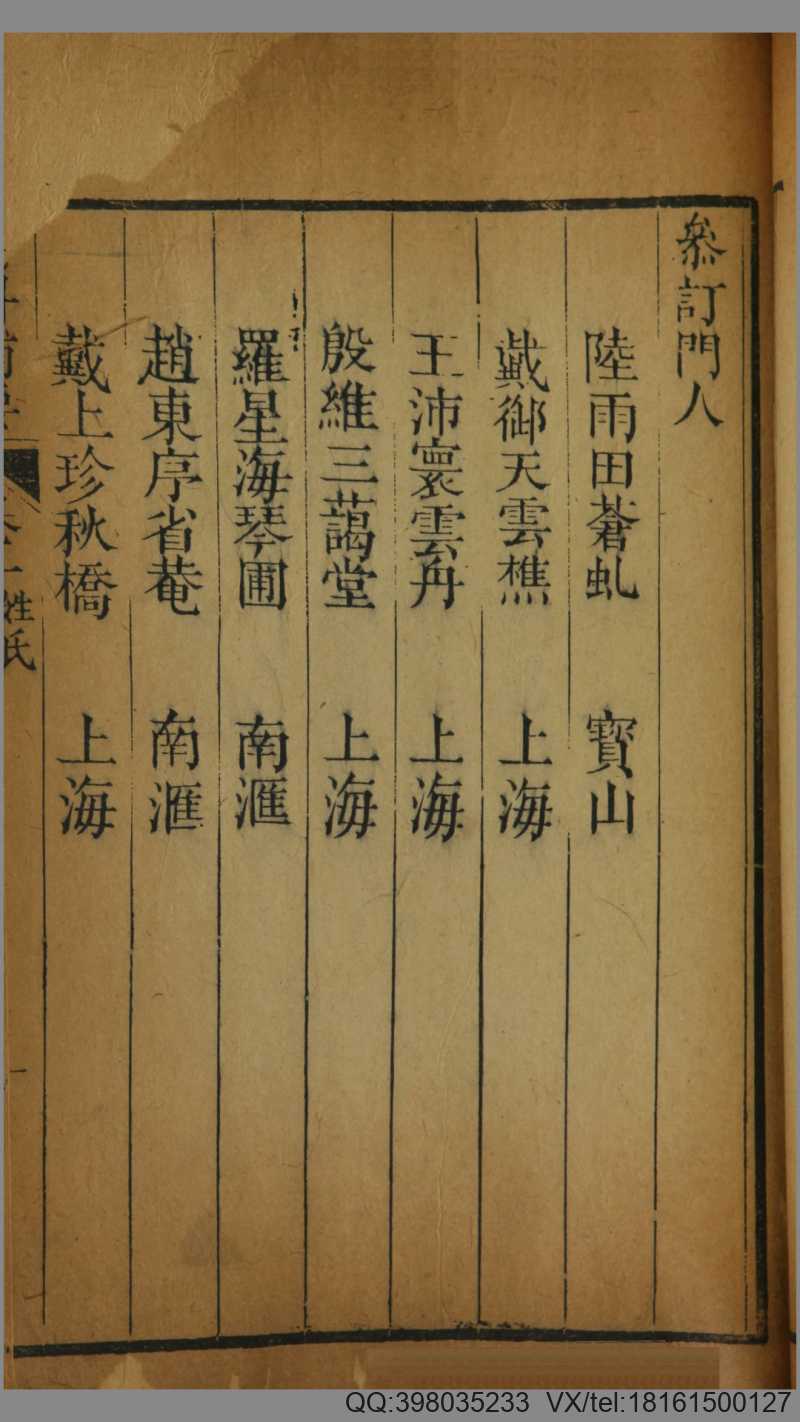 叅訂門人
陸雨田蒼虬 寳山
戴御天雲樵 上海
王沛寰雲丹 上海
殷維三藹堂 上海
羅星海琴圃 南滙
趙東序省菴 南滙
戴上珍秋橋 上海
卷一 姓氏
QQ:398035233 VX/tel:18161500127